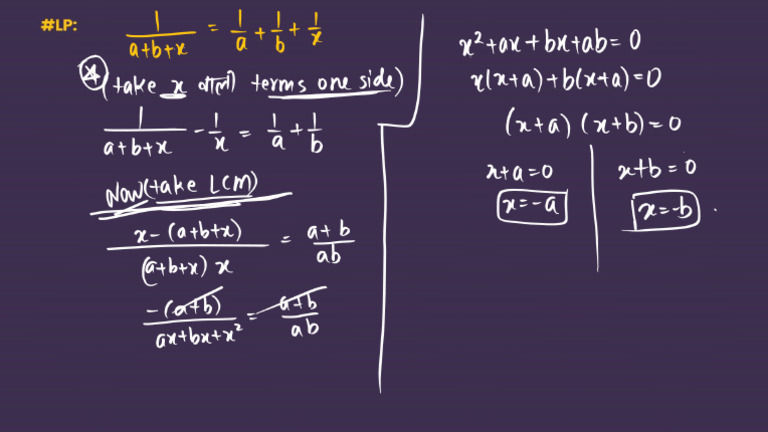 #LP: 1/(a+b+x) = 1/a + 1/b + 1/x
(take x वाली terms one side)
1/(a+b+x) - 1/x = 1/a + 1/b
Now (take LCM)
(x-(a+b+x))/((a+b+x) x) = (a+b)/ab
-(a+b)/(ax+bx+x²) = (a+b)/ab
x²+ax+bx+ab=0
x(x+a)+b(x+a)=0
(x+a) (x+b)=0
x+a=0
x=-a
x+b=0
x=-b